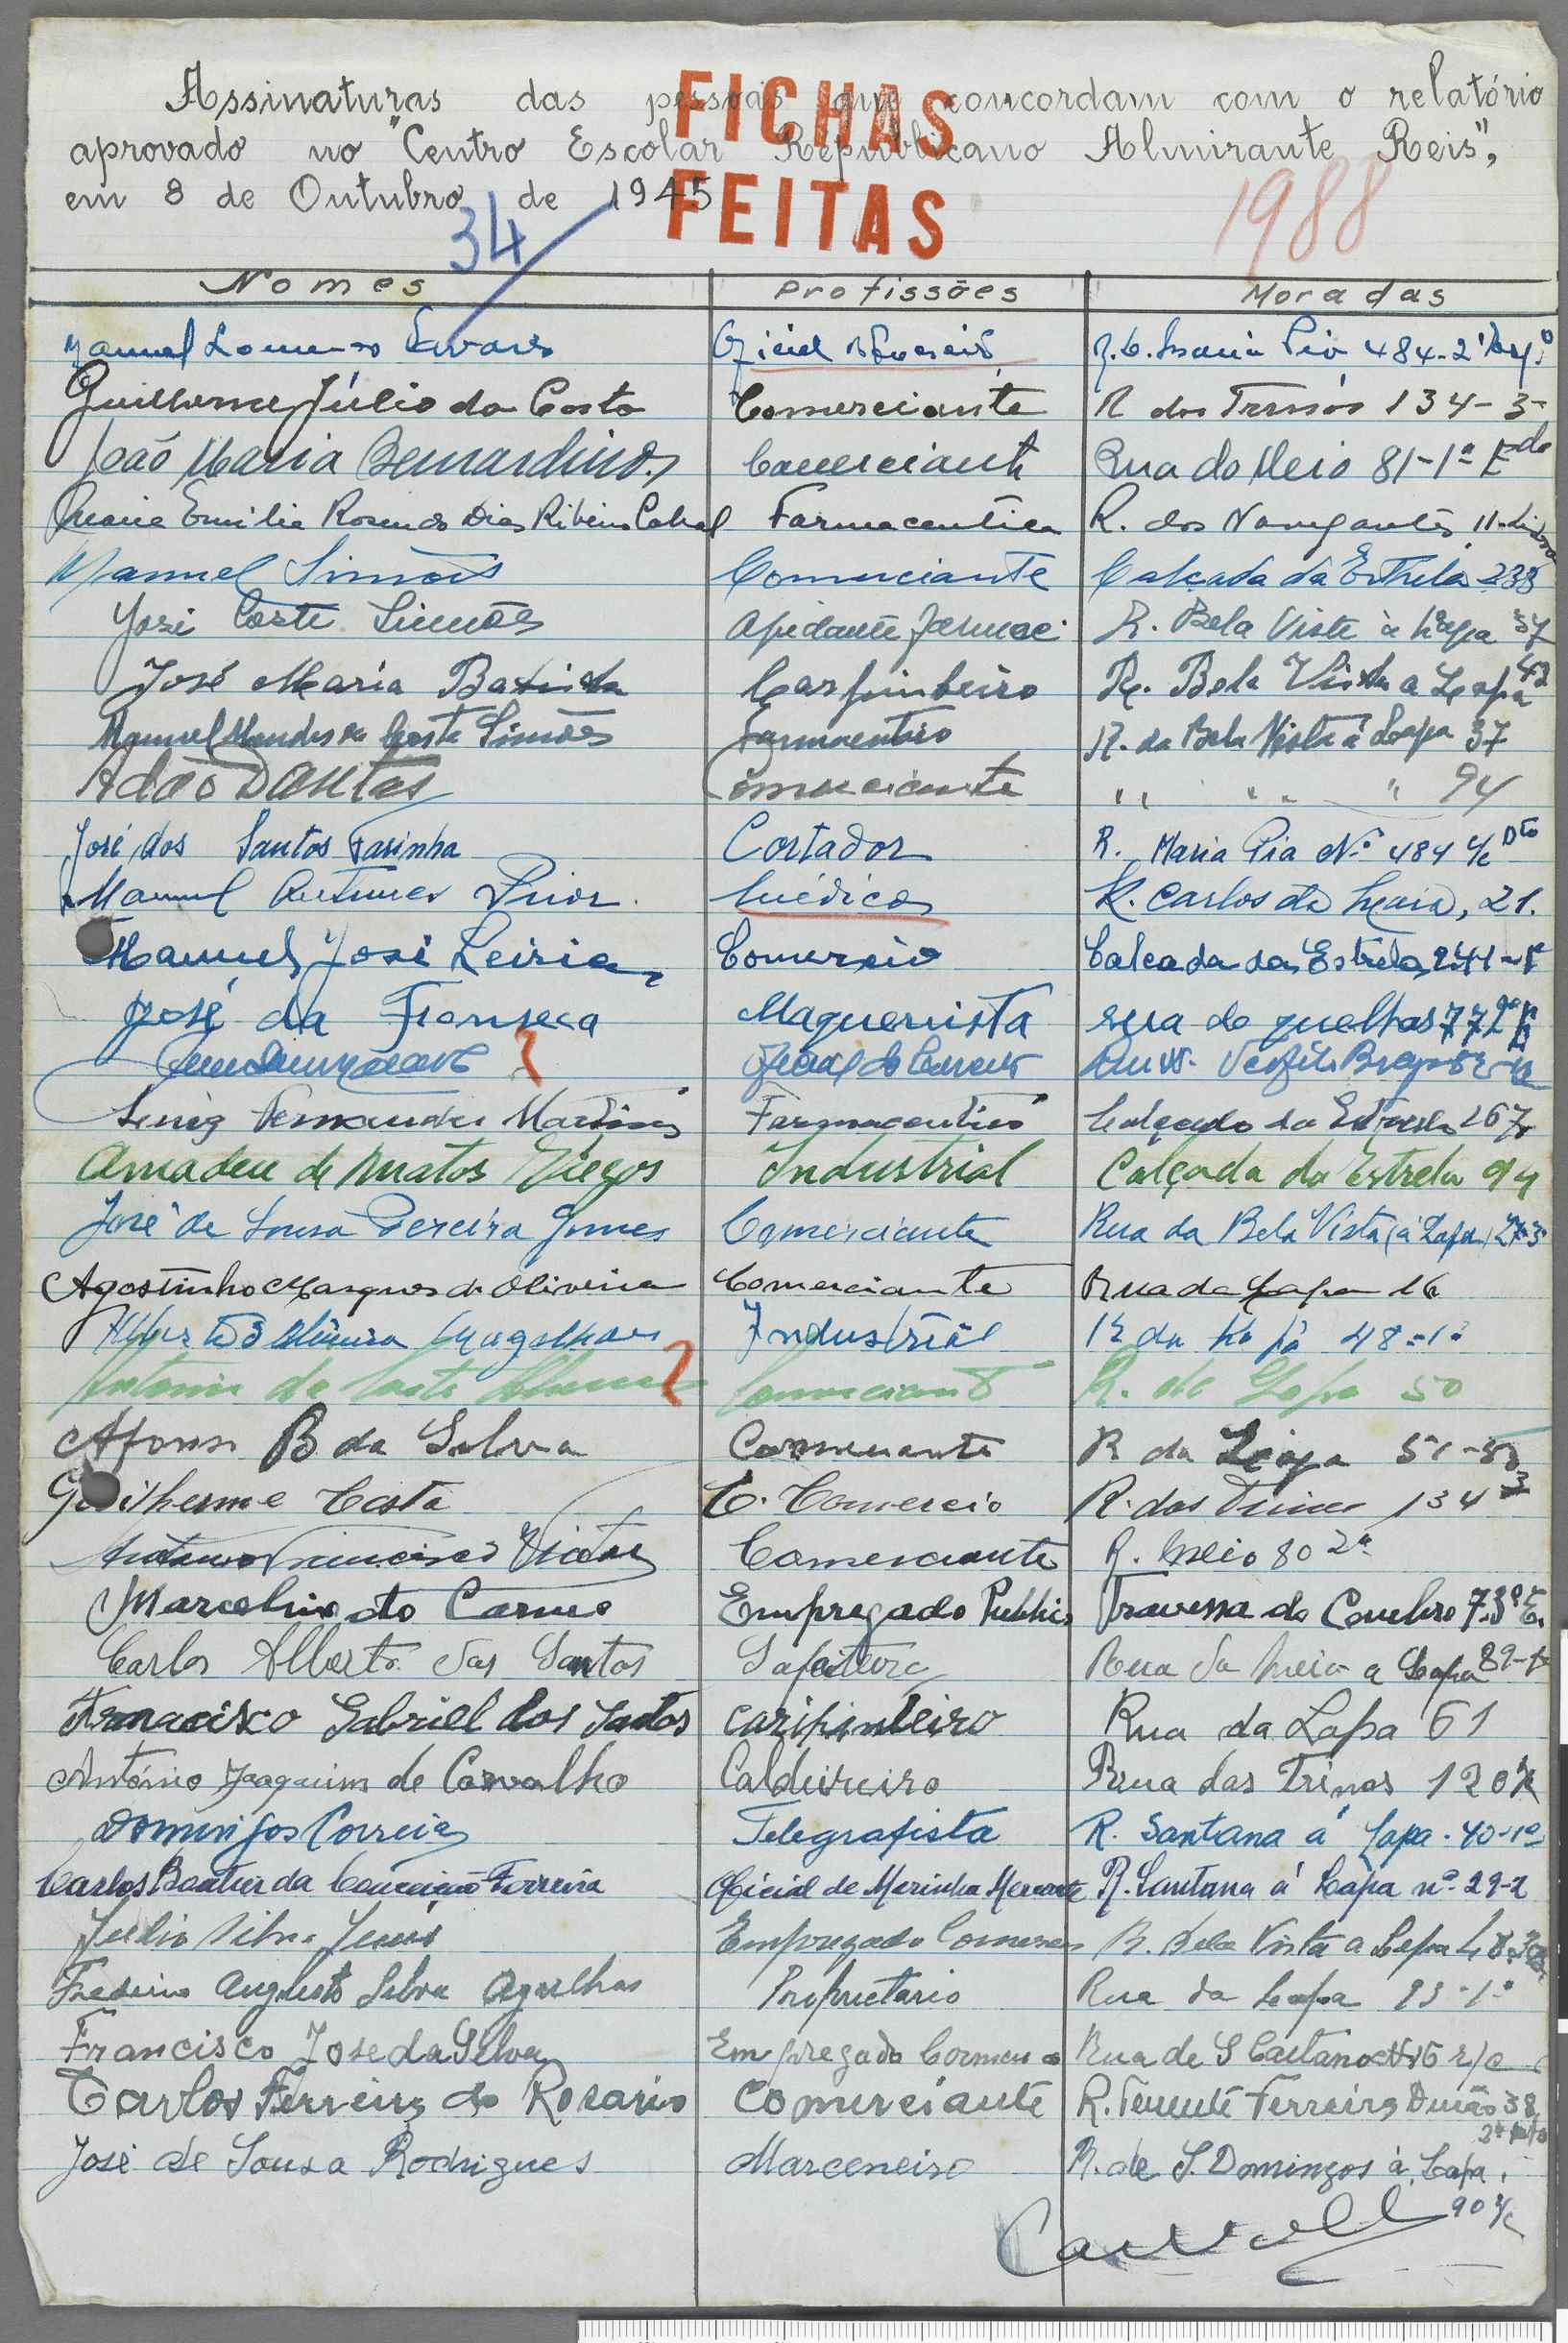 Assinaturas das pessoas que concordam com o relatório
aprovado no "Centro Escolar Republicano Almirante Reis",
em 8 de Outubro de 1945
FICHAS
FEITAS
34
1988
Nomes Profissões Moradas
Manuel Lourenço Tavares Oficial 484-2º
Guilherme Júlio da Costa Comerciante R dos Trinos 134-3-
João Maria Bernardino Comerciante Rua do Meio 81-1º
Maria Emilia Rosendo Dias Ribeiro Cabral Farmaceutica R. dos Navegantes 11-Lisboa
Manuel Simões Comerciante Calçada da Estrela 233
José Costa Simões Ajudante R. Bela Vista à Lapa 37
José Maria Batista Carpinteiro R. Bela Vista a Lapa 42
Manuel Mendes da Costa Simões Farmaceutico R. da Bela Vista à Lapa 37
Adão Dantas Comerciante " " " 94
José dos Santos Farinha Cortador R. Maria Pia Nº 484 r/c Dto
Manuel Antunes Prior Médico R. Carlos da Maia, 21.
Manuel José Leiria Comercio Calçada da Estrela, 241
José da Fonseca Maquenista rua do quelhas 77
Fernandes Martins Farmaceutico Calçada da Estrela 267
Amadeu de Matos Viegas Industrial Calçada da Estrela 94
José de Sousa Pereira Gomes Comerciante Rua da Bela Vista (à Lapa) 27-3
Agostinho Marques de Oliveira Comerciante Rua da Lapa 16
Alberto Oliveira Magalhães Industrial R da Lapa 48-1º
Antonio da Costa Comerciante R. da Lapa 50
Afonso B da Silva Comerciante R da Lapa 51
Guilherme Costa E. Comercio R. dos Trinos 134 3
Antonio Francisco Victor Comerciante R. Meio 80 2º
Marcelino do Carmo Empregado Publico Travessa do Combro 7-3º E.
Carlos Alberto dos Santos Sapateiro Rua do Meio a Lapa 89
Francisco Gabriel dos Santos caripinteiro Rua da Lapa 61
António Joaquim de Carvalho Caldeireiro Rua das Trinas 120
Domingos Correia Telegrafista R. Santana á Lapa . 40-1º
Carlos da Conceição Ferreira Oficial de Marinha Mercante R. Santana á Lapa nº 29-2
Julio Silva Jesus Empregado Comercio R. Bela Vista a Lapa
Frederico Augusto Silva Agulhas Proprietario Rua da Lapa 93-1º
Francisco José da Silva Empregado Comercio Rua de S Caetano Nº6 r/c
Carlos Ferreira do Rosario Comerciante R. Tenente Ferreira Durão 38
José de Sousa Rodrigues Marceneiro R. de S. Domingos à Lapa,
90 r/c